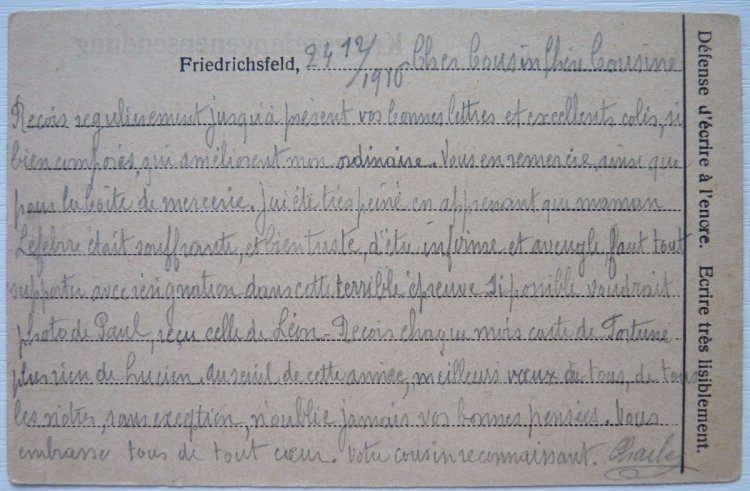 Kriegsgefangenensendung
Friedrichsfeld, 24 12/1916 Cher Cousin Chère Cousine
Reçois regulierement jusqu'à présent vos bonnes lettres et excellents colis, si
bien composés, qui améliorent mon ordinaire. Vous en remercie, ainsi que
pour la boîte de mercerie. J'ai été très peiné en apprenant que maman
Lefebre était souffrante, et bien triste, d'être infirme et aveugle, faut tout
supporter avec résignation dans cette terrible épreuve. Si possible voudrait
photo de Paul, reçu celle de Léon. Reçois chaque mois carte de Fortuné
plus rien de Lucien. Au seuil de cette année, meilleurs vœux à tous, de tous
les nôtres, sans exception, n'oublie jamais vos bonnes pensées. Vous
embrasse tous de tout cœur. Votre cousin reconnaissant. Charles
Défense d'écrire à l'encre. Ecrire très lisiblement.